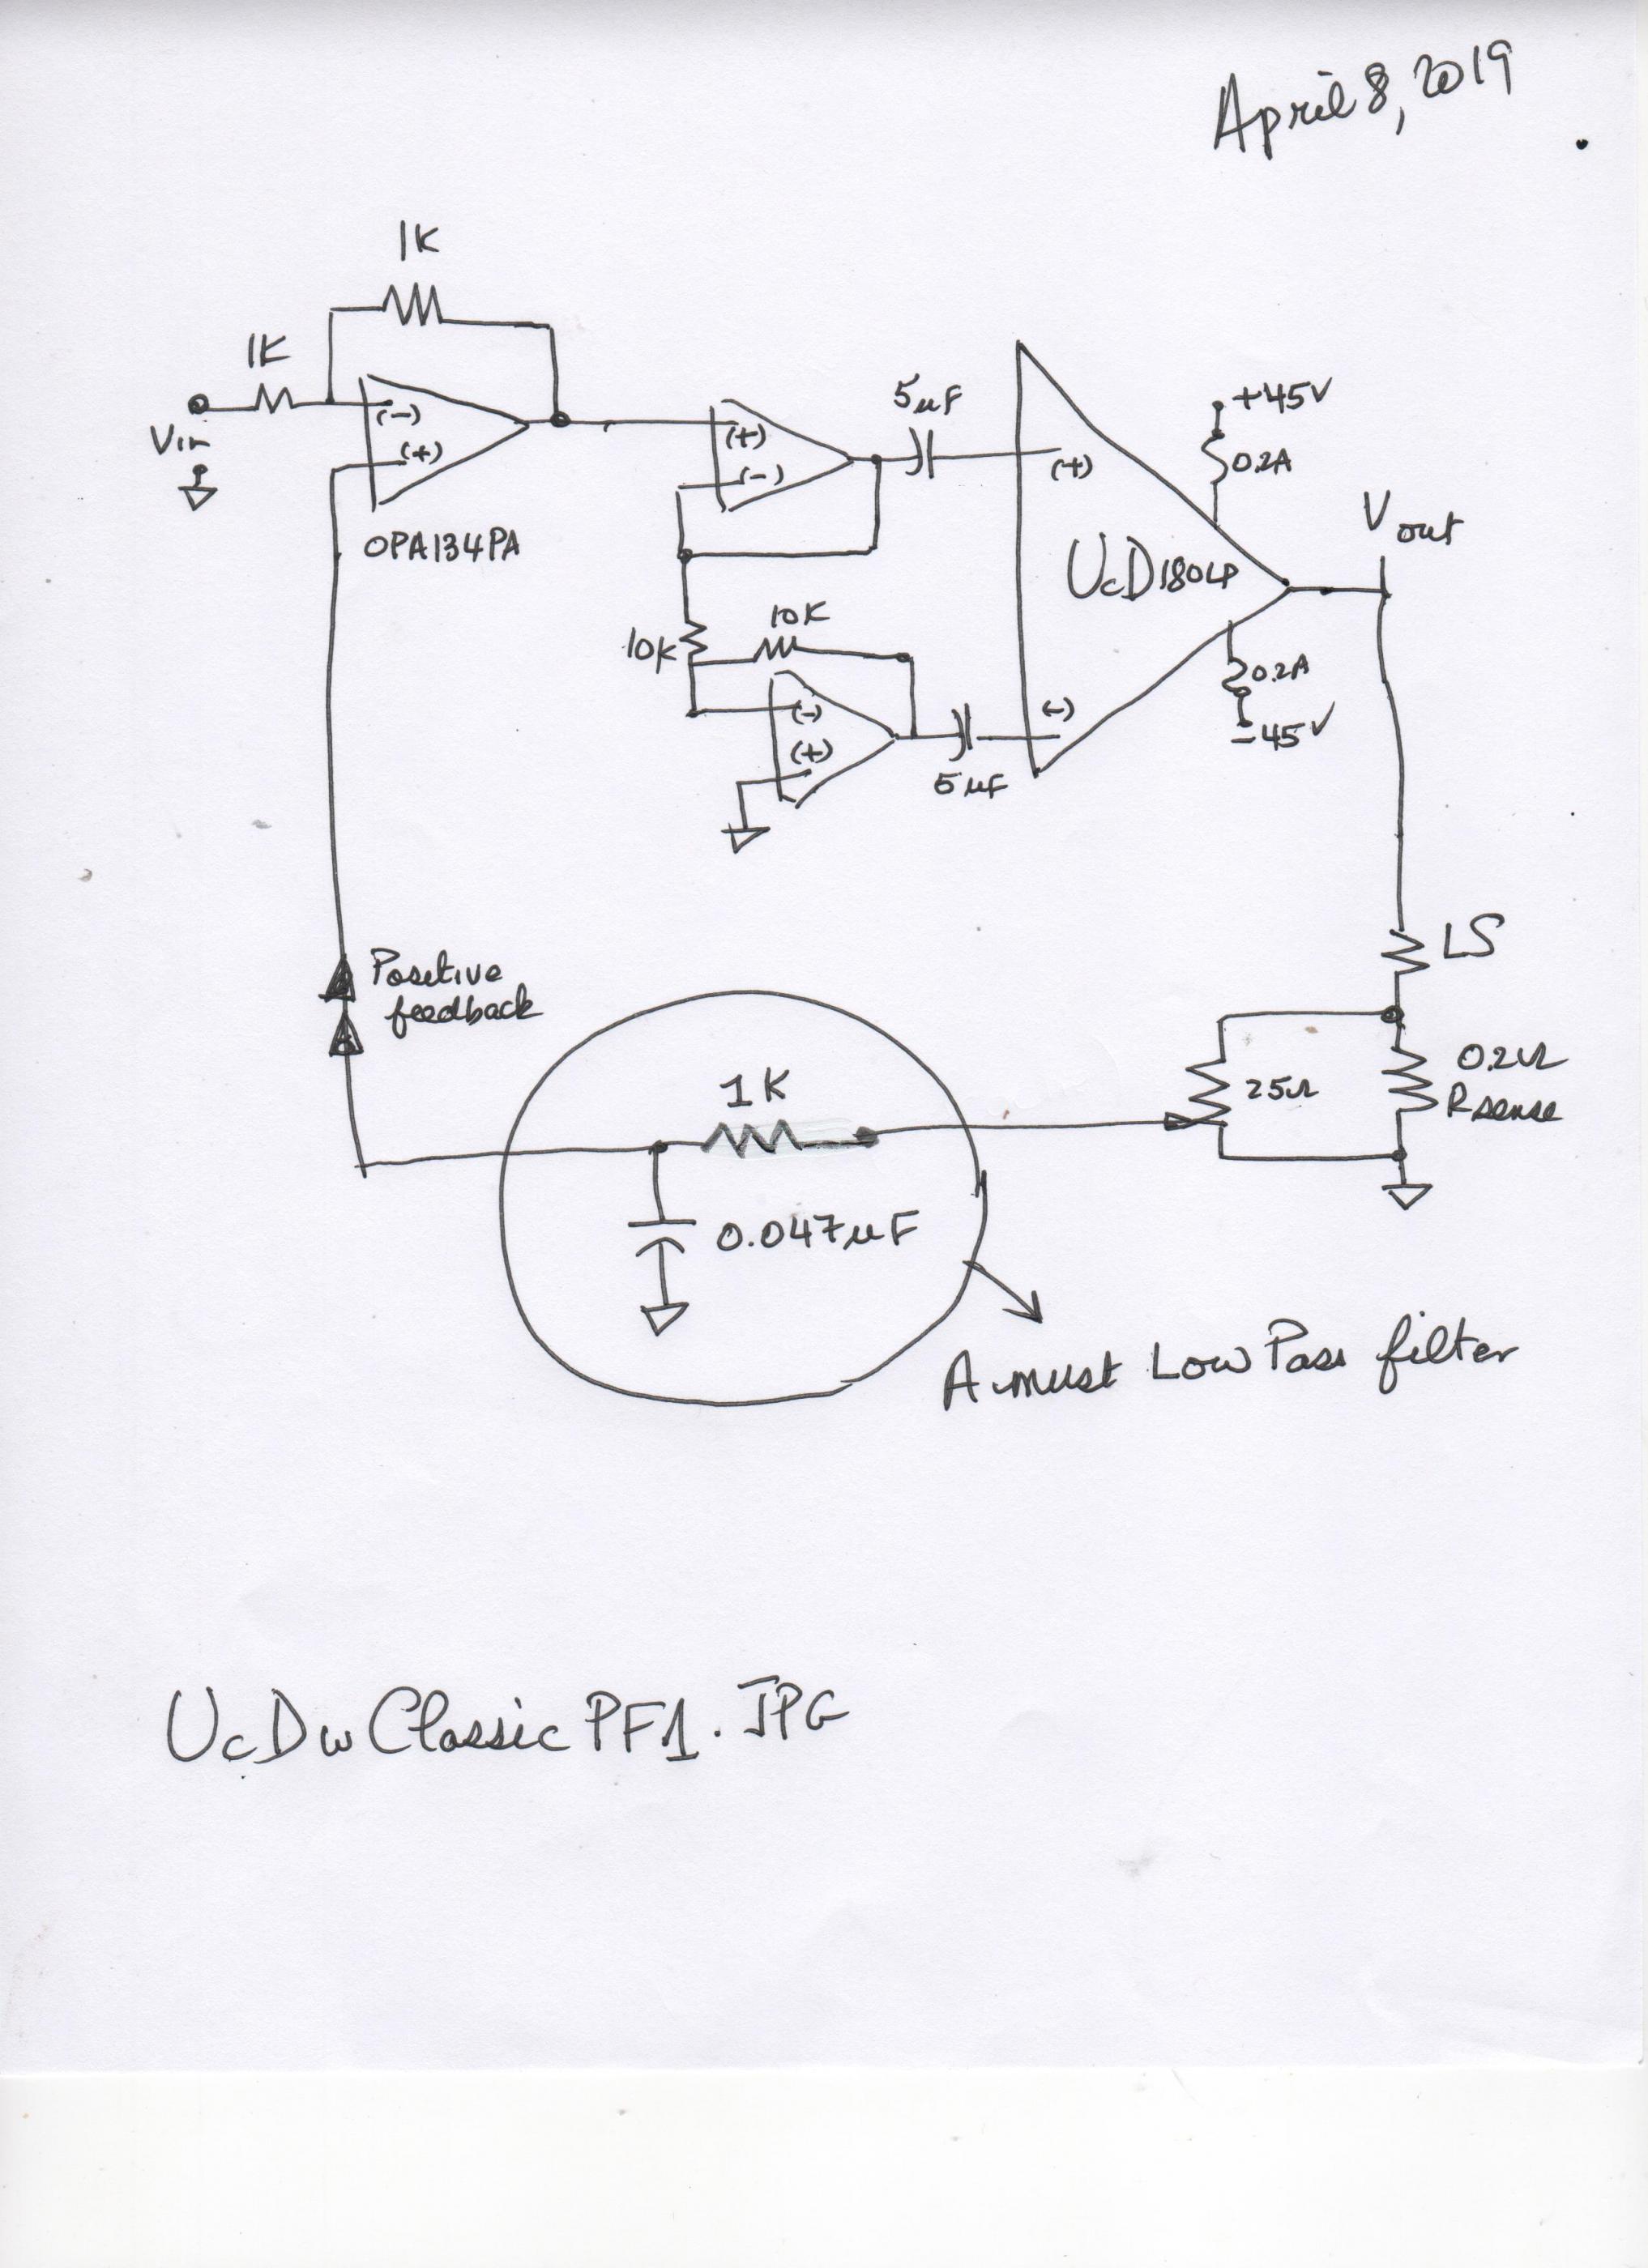 April 8, 2019
1K
1K
Vin
(-)
(+)
OPA134PA
(+)
(-)
5uF
(+)
+45V
0.2A
Vout
UcD180LP
10K
10K
(-)
(+)
5uF
(-)
0.2A
-45V
LS
Positive
feedback
1K
25Ω
0.2Ω
Rsense
0.047uF
A must Low Pass filter
UcDwClassicPF1.JPG